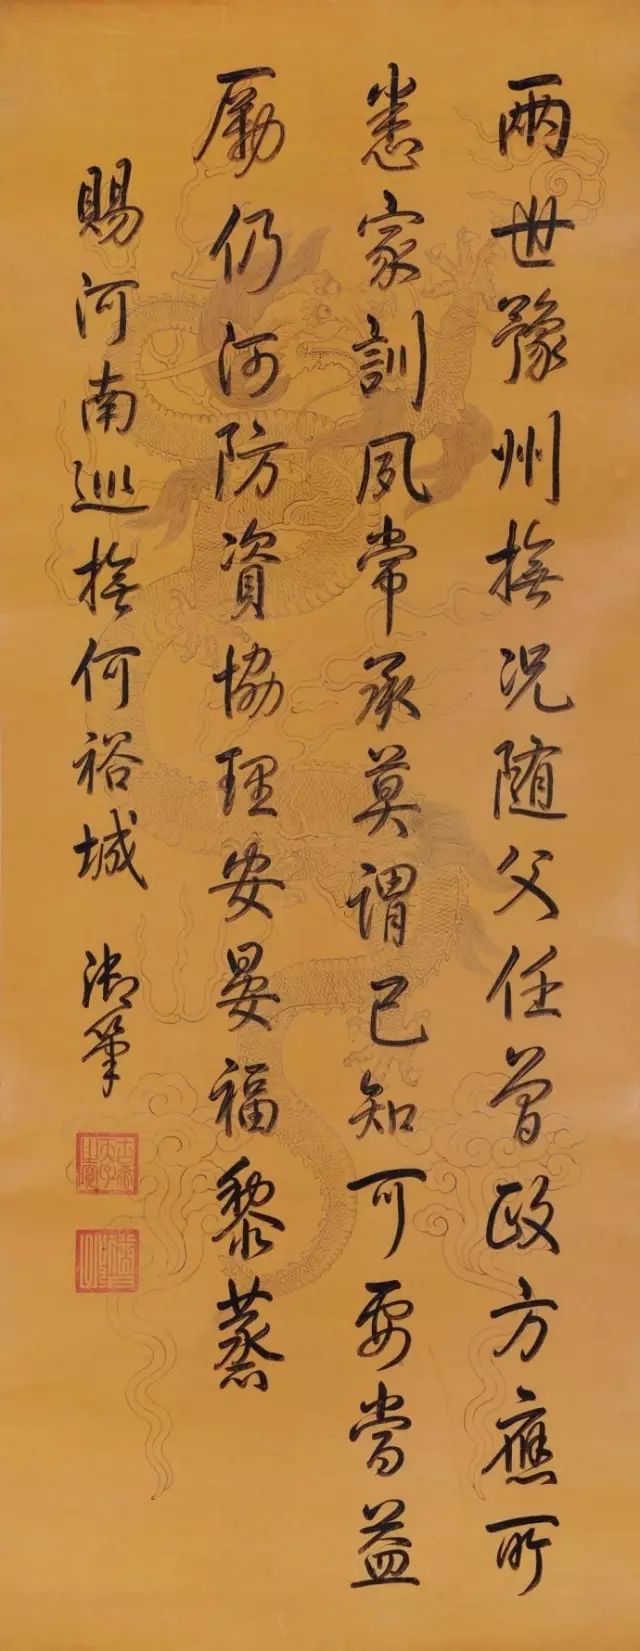 兩世豫州撫況随父任曾政方應所
悉家訓夙常承莫謂已知可要當益
勵仍河防資協理安晏福黎蒸
賜河南巡撫何裕城
御筆
古希天子之寶